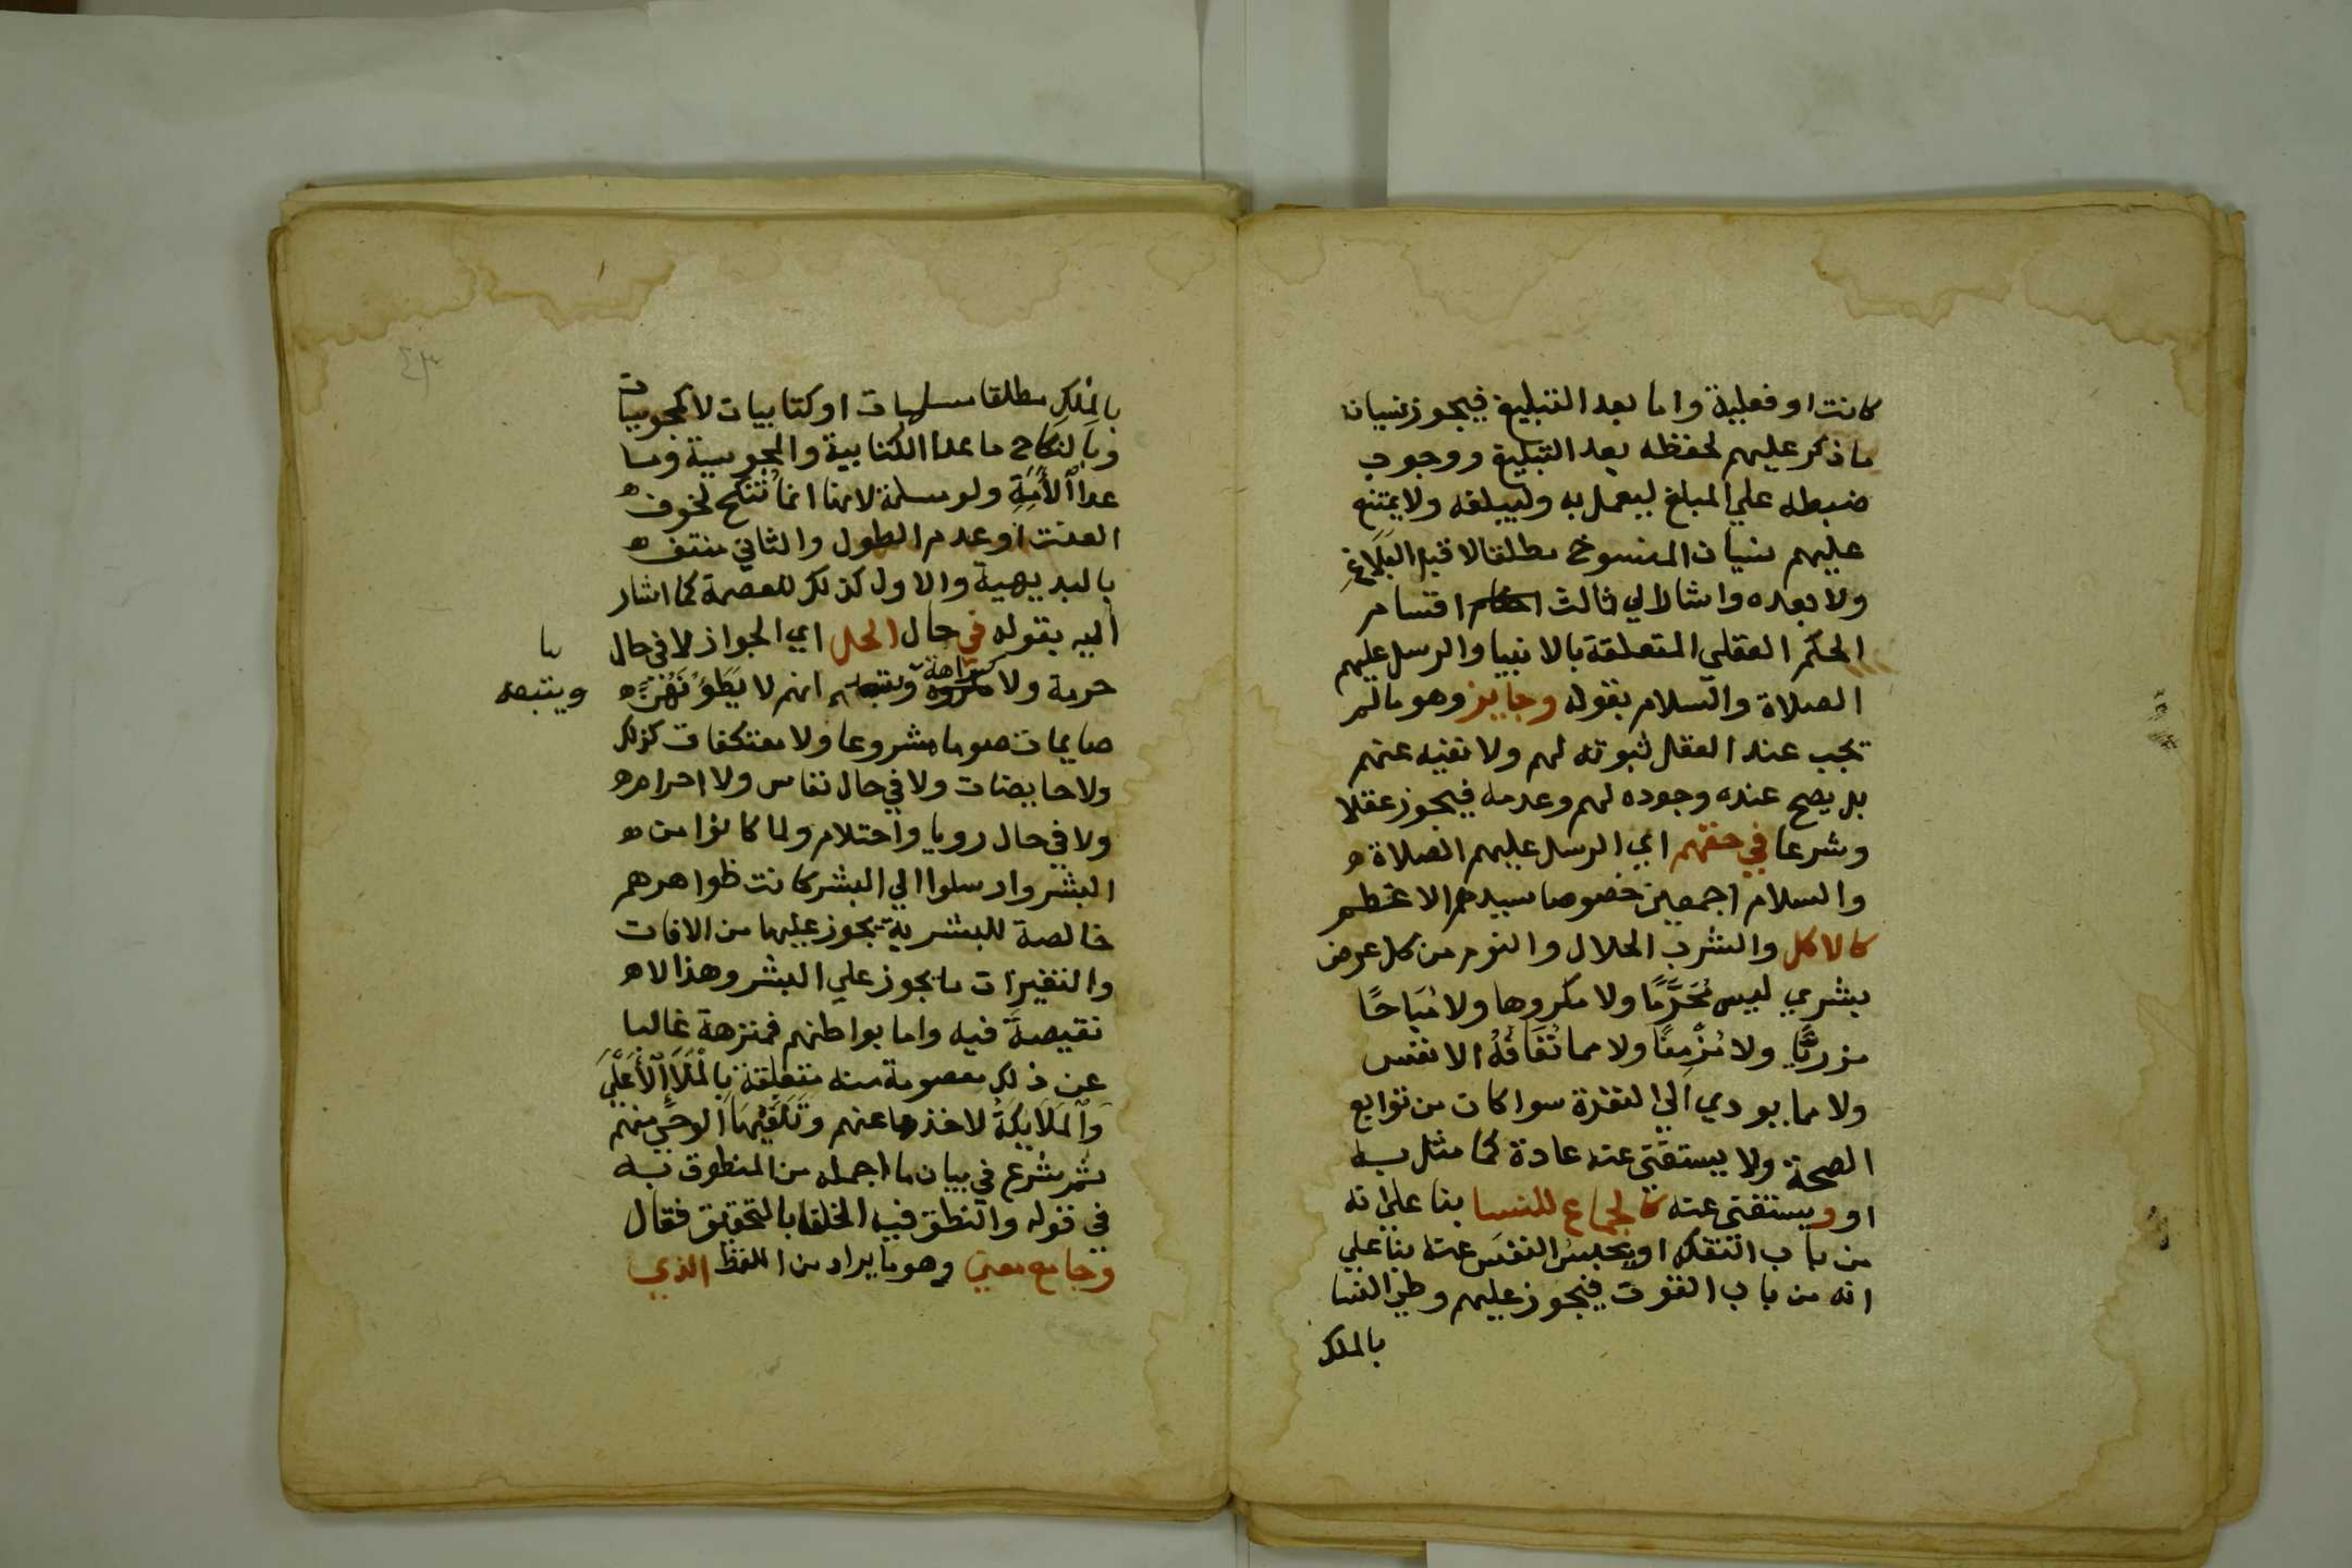 كانت او فعلية واما بعد التبليغ فيجوز نسيان
ما ذكر عليهم لحفظه بعد التبليغ ووجوب
ضبطه علي المبلغ ليعمل به وليبلغه ولا يمتنع
عليهم نسيان المنسوخ مطلقا لا قبل البَلَاغِ
ولا بعده واشار الي ثالث اقسام
الحكم العقلي المتعلقة بالانبيا والرسل عليهم
الصلاة والسلام بقوله وجايز وهو ما لم
تجب عند العقل ثبوته لهم ولا نفيه عنهم
بل يصح عنده وجوده لهم وعدمه فيجوز عقلا
وشرعا في حقهم اي الرسل عليهم الصلاة
والسلام اجمعين خصوصا سيدهم الاعظم
كالاكل والشرب الحلال والنوم من كل عرض
بشري ليس مُحَرَّمًا ولا مكروها ولا مُبَاحًا
مزريًّا ولا مُزْمِنًا ولا مما تَعَافُهُ الانفس
ولا مما يودي الي النفرة سوا كان من توابع
الصحة ولا يستغني عنه عادة كما مثل به
او ويستغني عنه كالجماع للنسا بنا علي انه
من باب التفكه او يحبس النفس عنه بنا علي
انه من باب القوت فيجوز عليهم وطي النسا
بالملك
بالمِلْكِ مطلقا مسلمات او كتابيات لا مجوسيات
وبالنكاح ما عدا الكتابية والمجوسية وما
عدا الأَمَةِ ولو مسلمة لانها انما تُنْكَحُ لخوف
العنت او عدم الطول والثاني منتف
بالبديهية والاول كذلك للعصمة كما اشار
اليه بقوله في حال الحل اي الجواز لا في حال
حرمة ولا كراهة انهم لا يَطَؤُنَهُنَّ
ما
وينتبعه
صايمات صوما مشروعا ولا معتكفات كذلك
ولا حايضات ولا في حال نفاس ولا احرام
ولا في حال رويا واحتلام ولما كانوا من
البشر وارسلوا الي البشر كانت ظواهرهم
خالصة للبشرية يجوز عليها من الافات
والتغيرات ما يجوز علي البشر وهذا لا
نقيصة فيه واما بواطنهم فمنزهة غالبا
عن ذلك معصومة منه متعلقة بِالْمَلَإِ الأَعْلَي
وَالْمَلَايِكَةُ لاخذها عنهم وتَلَقِّيهَا الوحي منهم
ثم شرع في بيان ما اجمله من المنطوق به
في قوله والنطق فيه الخلف بالتحقيق فقال
وجامع معني وهو ما يراد من اللفظ الذي